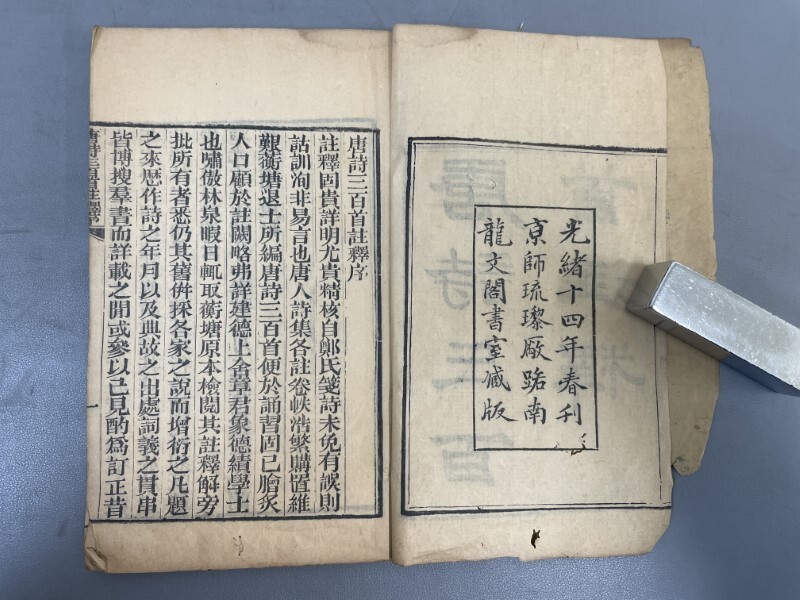 光緒十四年春刊
京師琉璃厰路南
龍文閣書室藏版
唐詩三百首註釋序
註釋固貴詳明尤貴精核自鄭氏箋詩未免有誤則
詁訓洵非易言也唐人詩集各註卷帙浩繁購置維
艱蘅塘退士所編唐詩三百首便於誦習固已膾炙
人口顧於註闕略弗詳建德上舍章君象德績學士
也嘯傲林泉暇日輒取蘅塘原本檢閱其註釋解旁
批所有者悉仍其舊倂採各家之說而增衍之凡題
之來歷作詩之年月以及典故之出處詞義之貫串
皆博搜羣書而詳載之閒或參以己見酌爲訂正昔